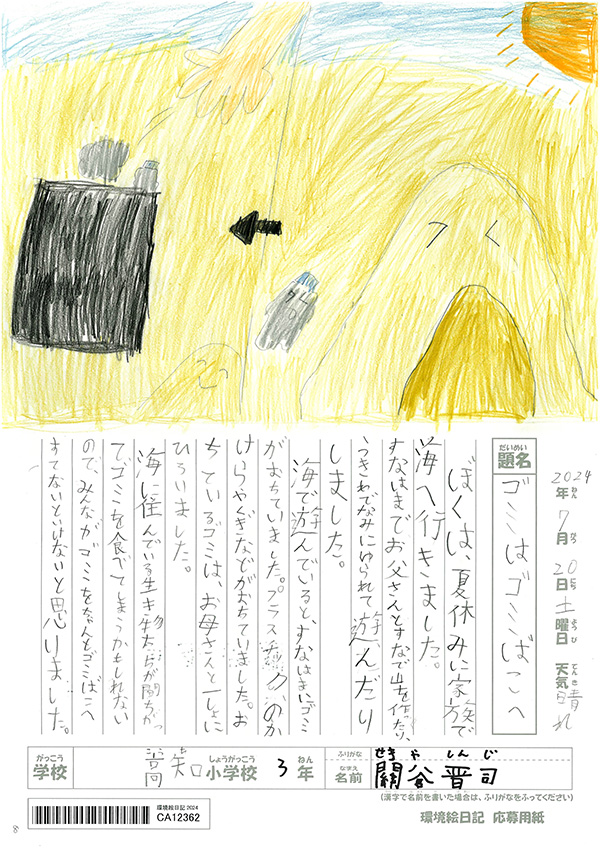 2024年ねん 7月がつ 20日にち 土曜日ようび 天気てんき 晴れ
題名だいめい ゴミはゴミばこへ
ぼくは、夏休みに家族で
海へ行きました。
すなはまでお父さんとすなで山を作たり、
うきわでなみにゆられて遊んだり
しました。
海で遊んでいると、すなはまにゴミ
がおちていました。プラスチックのか
けらやくぎなどがおちていました。お
ちているゴミは、お母さんと一しょに
ひろいました。
海に住んでいる生き物たちが間ちがっ
てゴミを食べてしまうかもしれない
ので、みながゴミをちゃんとゴミばこへ
すてないといけないと思いました。
がっこう 学校
高知 小学校しょうがっこう 3 年ねん
ふりがな せきや しんじ
なまえ 名前 關谷晋司
(漢字で名前を書いた場合は、ふりがなをふってください)
環境絵日記 2024
CA12362
環境絵日記 応募用紙
8